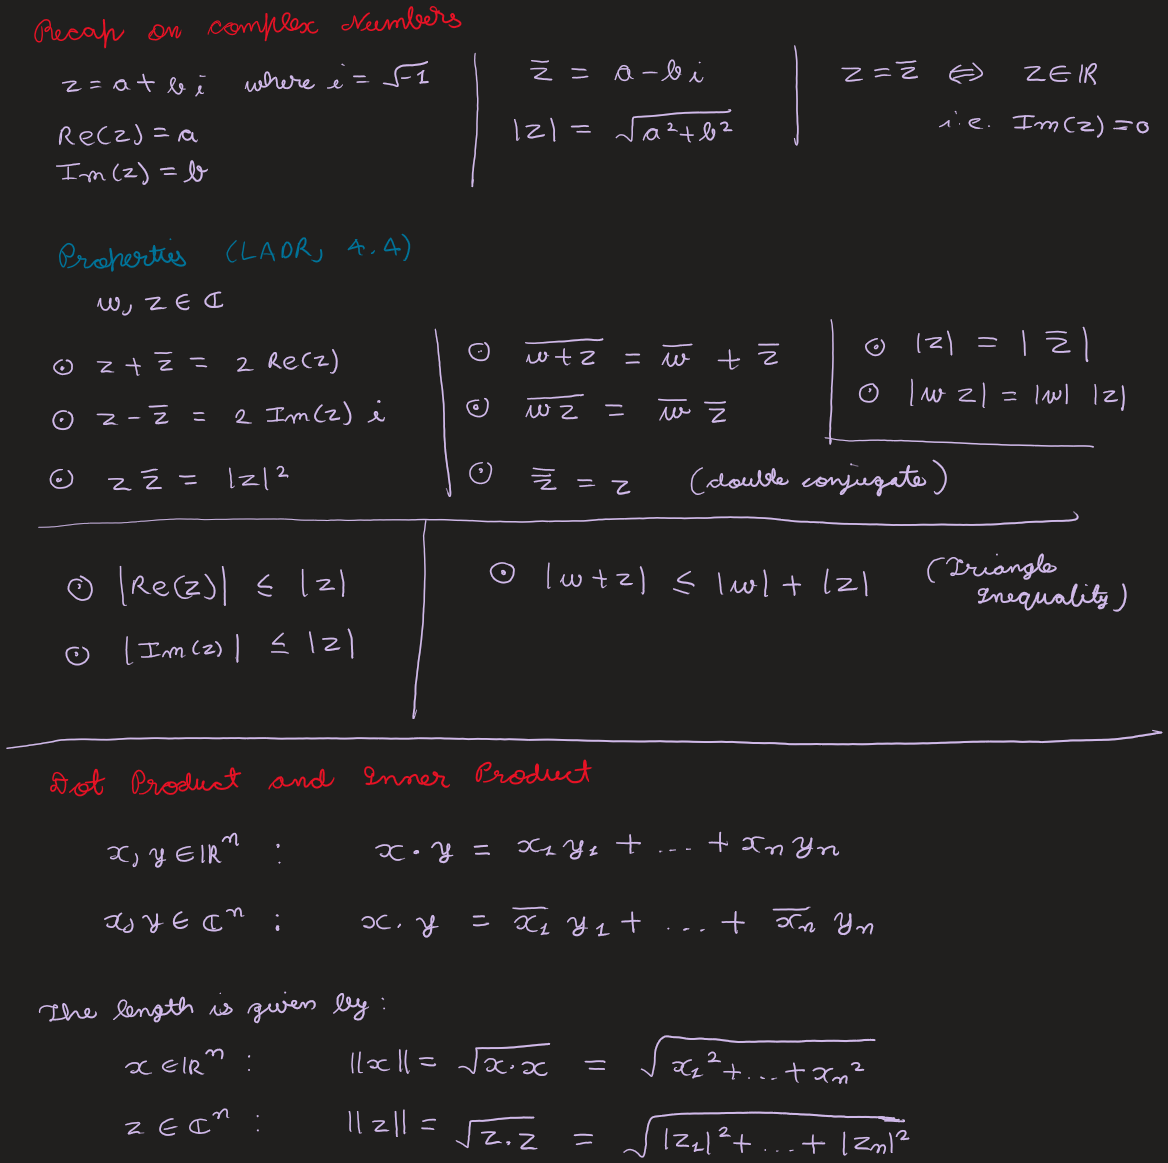 Recap on complex Numbers
z = a + bi where i = √-1
Re(z) = a
Im(z) = b
z̅ = a - bi
|z| = √(a² + b²)
z = z̅ ⇔ z ∈ ℝ
i.e. Im(z) = 0
Properties (LADR, 4.4)
w, z ∈ ℂ
⊙ z + z̅ = 2 Re(z)
⊙ z - z̅ = 2 Im(z) i
⊙ z z̅ = |z|²
⊙ \overline{w+z} = w̅ + z̅
⊙ \overline{wz} = w̅ z̅
⊙ \overline{\overline{z}} = z (double conjugate)
⊙ |z| = |z̅|
⊙ |w z| = |w| |z|
⊙ |Re(z)| ≤ |z|
⊙ |Im(z)| ≤ |z|
⊙ |w + z| ≤ |w| + |z| (Triangle
Inequality)
Dot Product and Inner Product
x, y ∈ ℝⁿ : x · y = x₁ y₁ + ... + xₙ yₙ
x, y ∈ ℂⁿ : x · y = x̅₁ y₁ + ... + x̅ₙ yₙ
The length is given by:
x ∈ ℝⁿ : ||x|| = √(x · x) = √(x₁² + ... + xₙ²)
z ∈ ℂⁿ : ||z|| = √(z · z) = √(|z₁|² + ... + |zₙ|²)